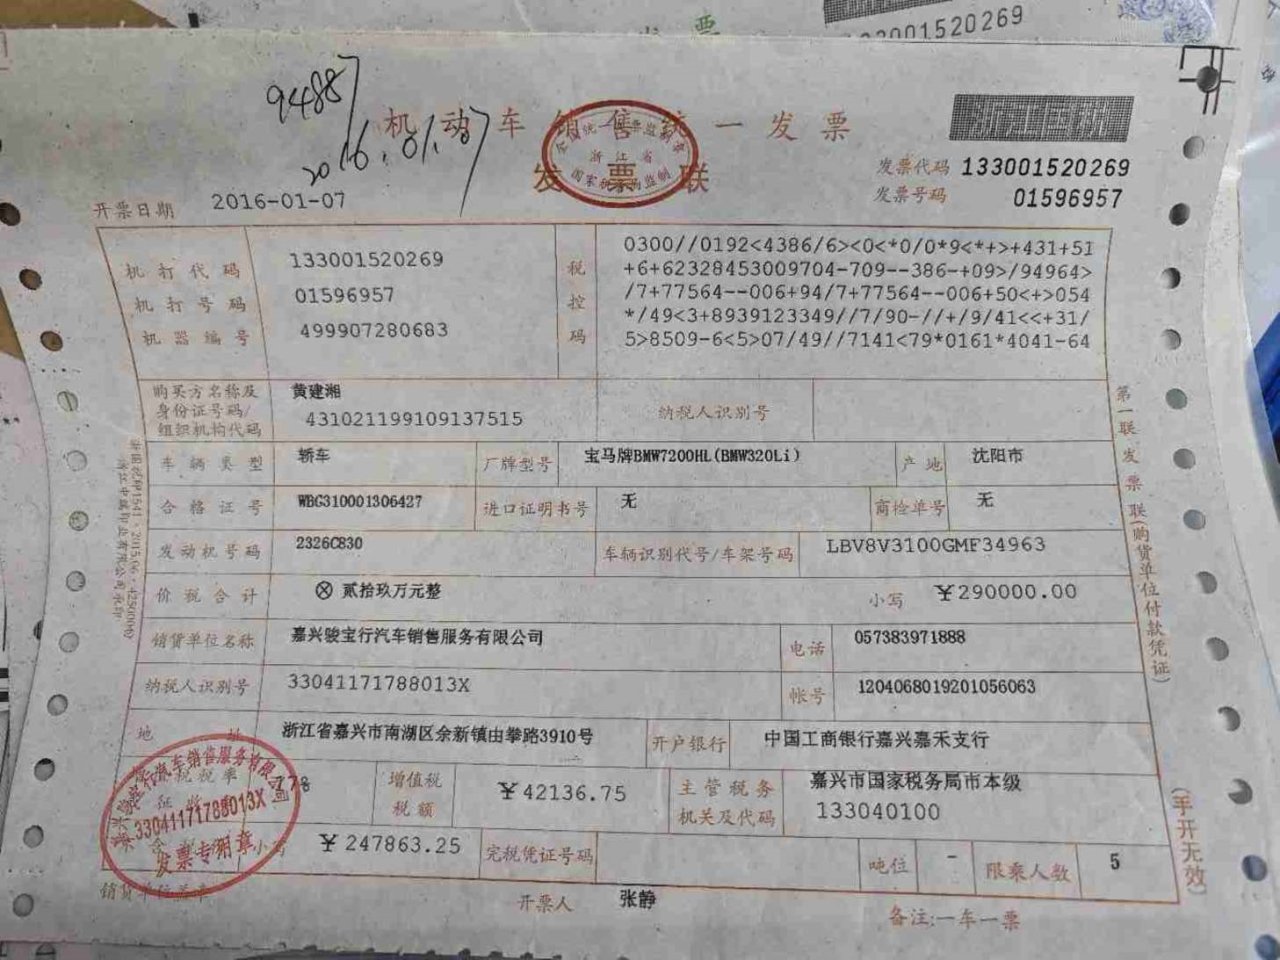 001520269
94887
2016.01.07
机动车销售统一发票
发票联
全国统一发票监制章
浙江省
国家税务局监制
浙江国税
发票代码 133001520269
发票号码 01596957
开票日期 2016-01-07
机打代码 133001520269
机打号码 01596957
机器编号 499907280683
税控码
0300//0192<4386/6><0<*0/0*9<*+>+431+51
+6+62328453009704-709--386-+09>/94964>
/7+77564--006+94/7+77564--006+50<+>054
*/49<3+8939123349//7/90-//+/9/41<<+31/
5>8509-6<5>07/49//7141<79*0161*4041-64
购买方名称及身份证号码/组织机构代码
黄建湘
431021199109137515
纳税人识别号
车辆类型 轿车 厂牌型号 宝马牌BMW7200HL(BMW320Li) 产地 沈阳市
合格证号 WBG310001306427 进口证明书号 无 商检单号 无
发动机号码 2326C830 车辆识别代号/车架号码 LBV8V3100GMF34963
价税合计 ⊗ 贰拾玖万元整 小写 ￥290000.00
销货单位名称 嘉兴骏宝行汽车销售服务有限公司 电话 057383971888
纳税人识别号 33041171788013X 帐号 1204068019201056063
地址 浙江省嘉兴市南湖区余新镇由拳路3910号 开户银行 中国工商银行嘉兴嘉禾支行
17% 增值税税额 ￥42136.75 主管税务机关及代码 嘉兴市国家税务局市本级
133040100
小写 ￥247863.25 完税凭证号码 吨位 - 限乘人数 5
嘉兴骏宝行汽车销售服务有限公司
33041171788013X
发票专用章
销货单位盖章 开票人 张静 备注:一车一票
第一联 发票联(购货单位付款凭证)
(手开无效)